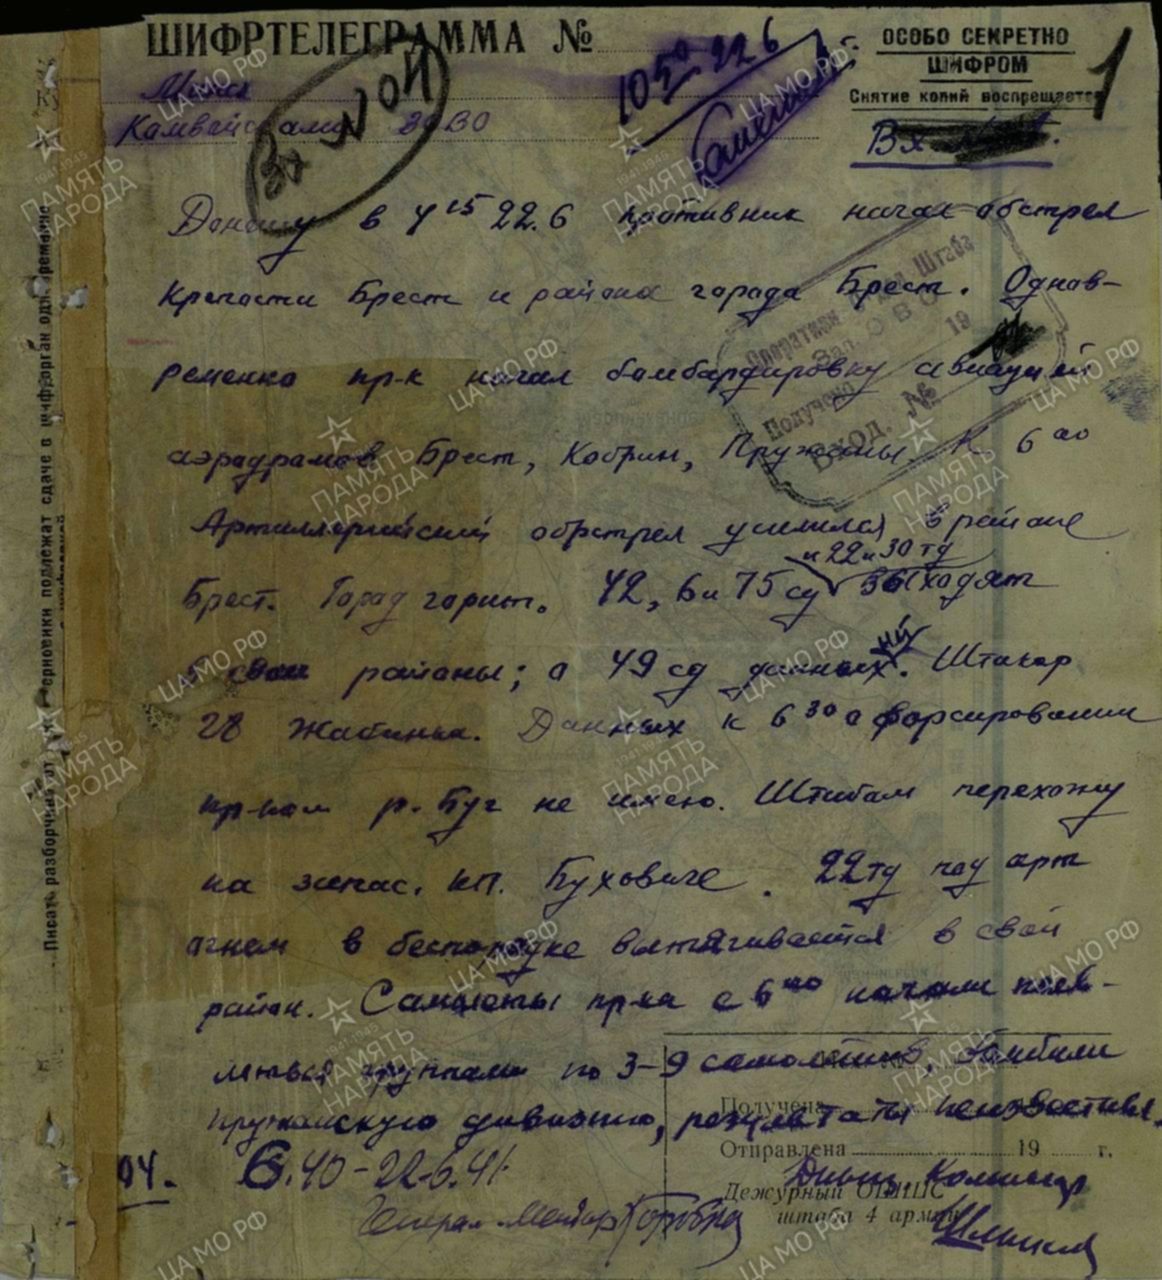 ШИФРТЕЛЕГРАММА №
ОСОБО СЕКРЕТНО
ШИФРОМ
Снятие копий воспрещается
Вх N 04
22 6
1
Вх
Минск
Камвайскама ЗОВО
Доношу в 4 15 22.6 противник начал обстрел
Крепости Брест и района города Брест. Однов-
ременно пр-к начал бомбардировку авиацией
аэродромов Брест, Кобрин, Пружаны. К 6 00
Артиллерийский обстрел усилился в районе
и 22 и 30 тд
Брест. Город горит. 42, 6 и 75 сд выходят
в свои районы; о 49 сд данных. Штакор
28 Жабинка. Данных к 6 30 о форсировании
пр-ком р. Буг не имею. Штабом перехожу
на запас. кп. Буховиче. 22тд под арт
огнем в беспорядке вытягивается в свой
район. Самолеты пр-ка с 6 00 начали появ-
ляться группами по 3-9 самолетов, бомбили
пружанскую дивизию, результаты неизвестны.
04. 6.40-22.6.41
Генерал-Майор Коробков
Дивиз. Комиссар
Шлыков
Оператив Отдел Штаба
Зап. ОВО
Получено 19
ВХОД. №
Получена
Отправлена 19 г.
Дежурный ОШШС
штаба 4 армии
Писать разборчиво
Черновики подлежат сдаче в шиф. орган одновременно
ПАМЯТЬ НАРОДА
1941-1945
ЦА МО РФ